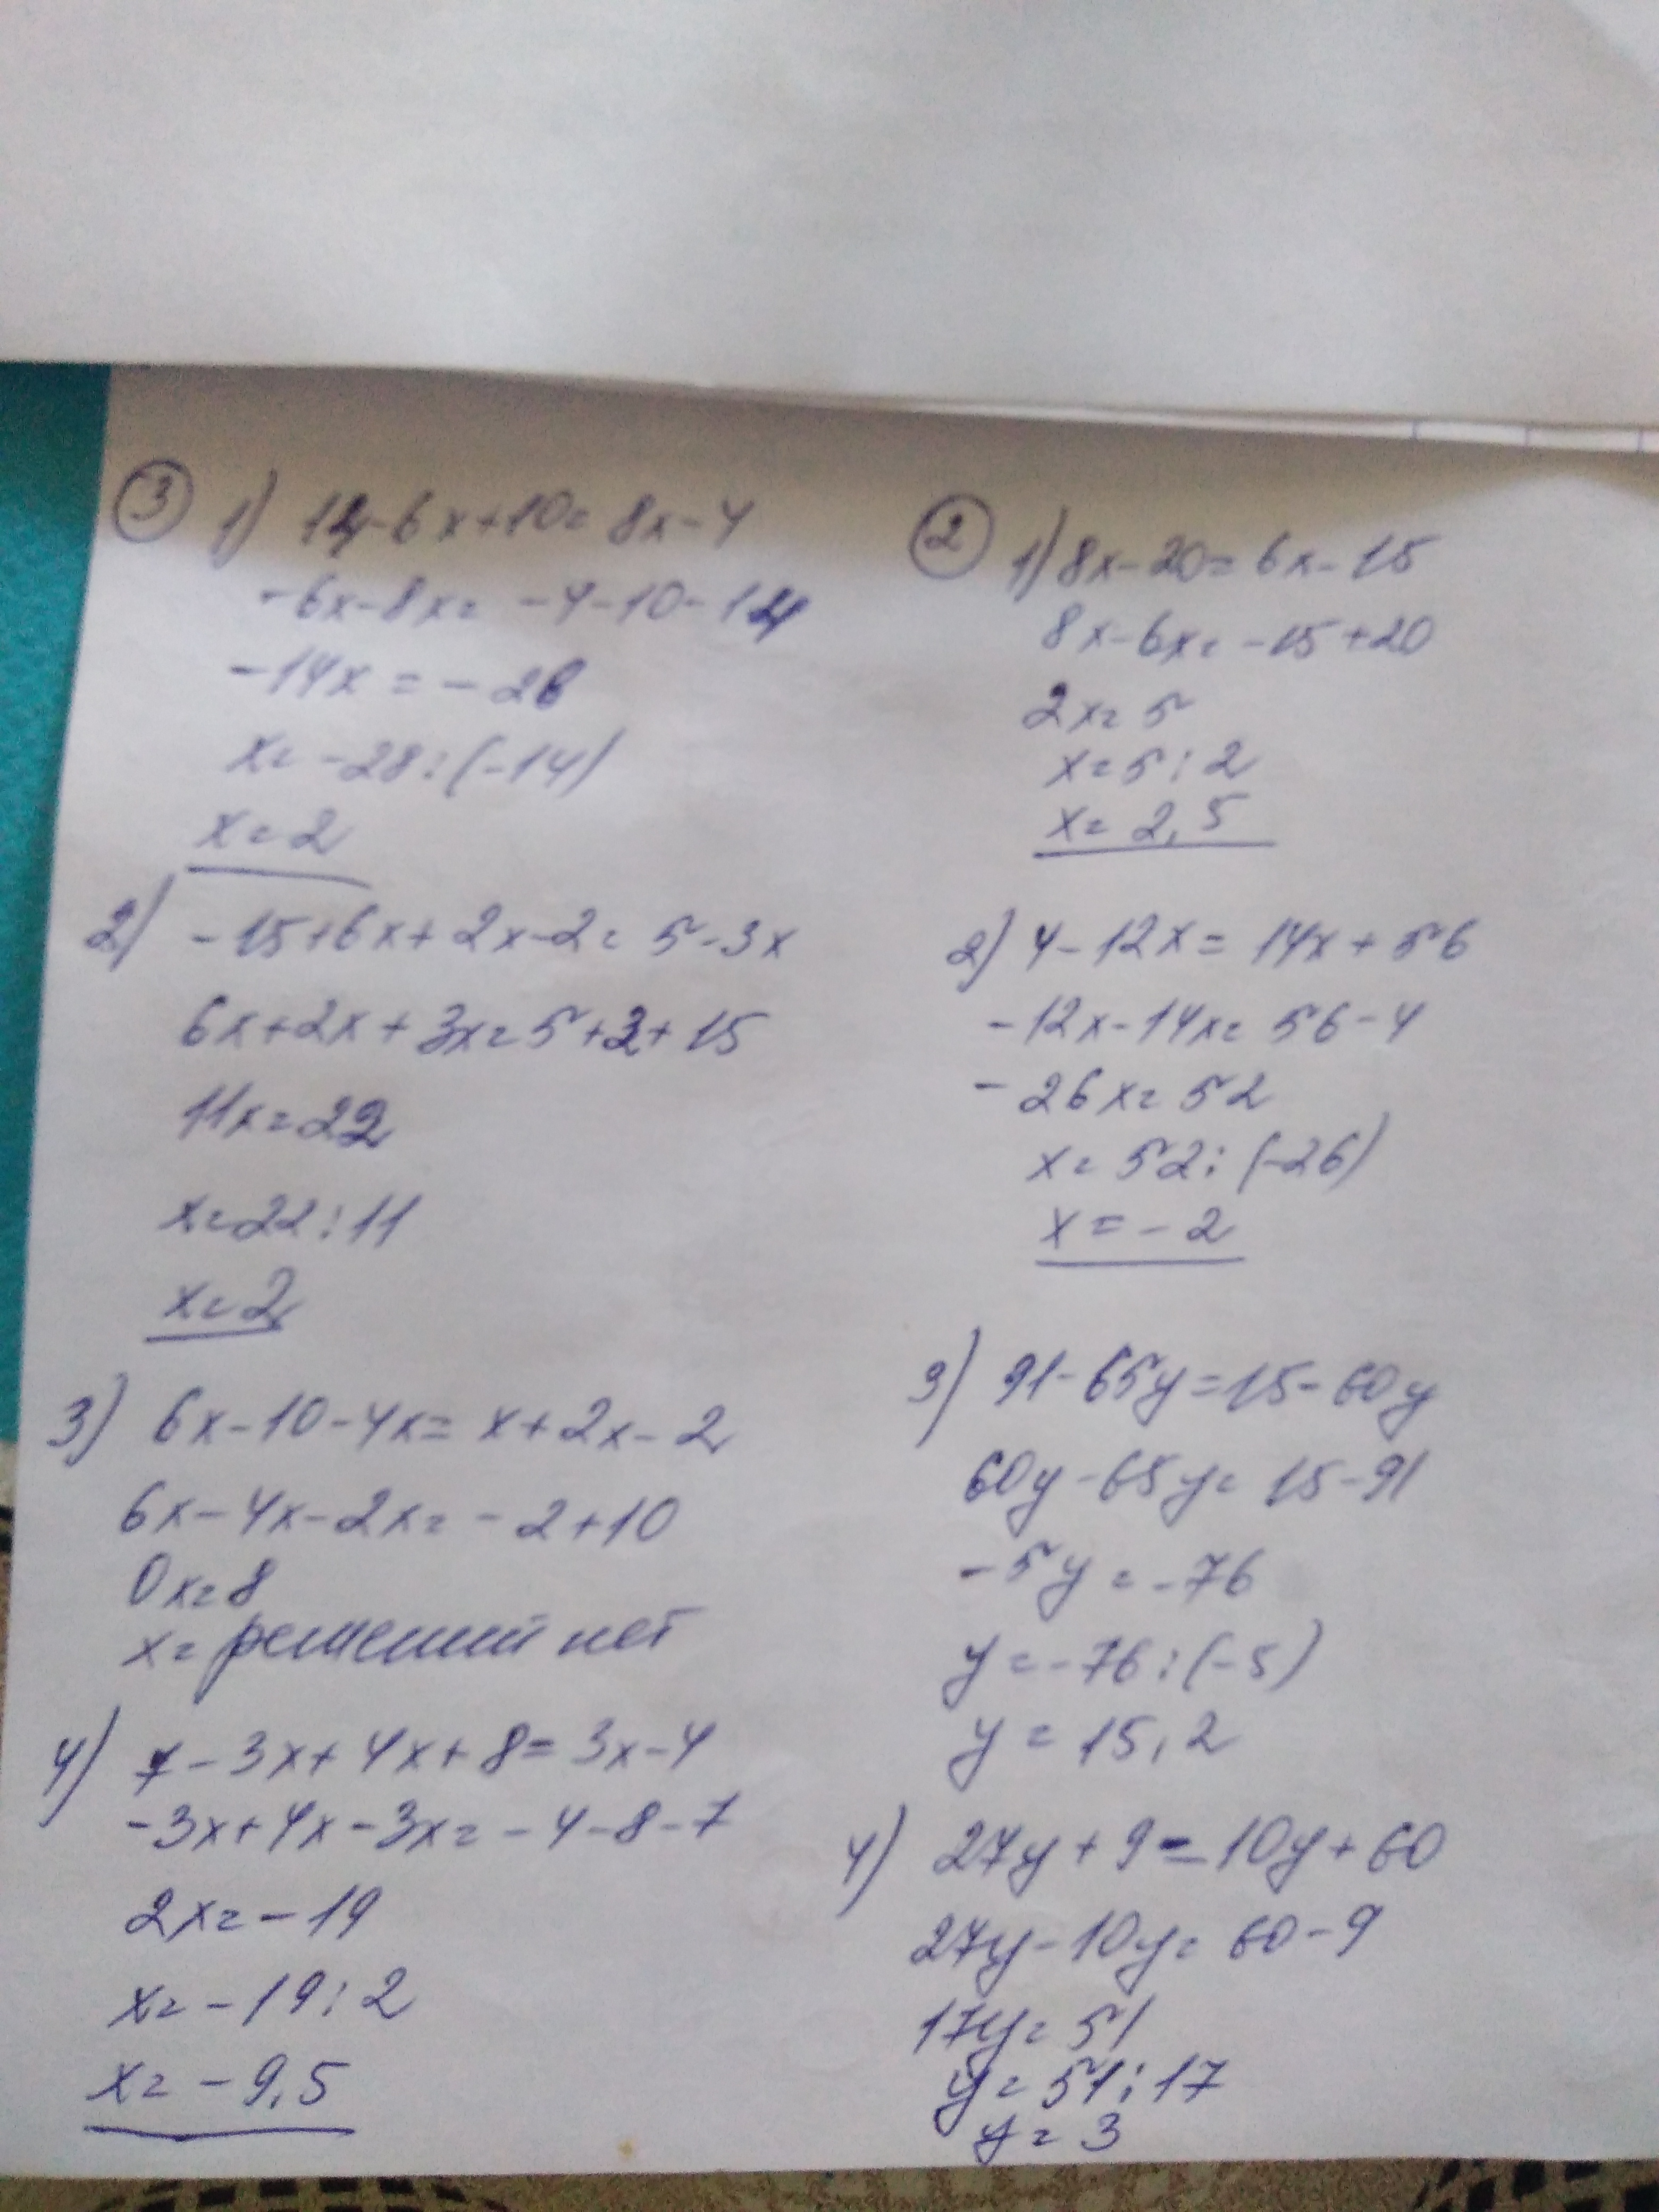 3 1) 14-6x+10=8x-4
-6x-8x=-4-10-14
-14x=-28
x=-28:(-14)
x=2
2) -15+6x+2x-2=5-3x
6x+2x+3x=5+2+15
11x=22
x=22:11
x=2
3) 6x-10-4x=x+2x-2
6x-4x-2x=-2+10
0x=8
x=решений нет
4) 7-3x+4x+8=3x-4
-3x+4x-3x=-4-8-7
2x=-19
x=-19:2
x=-9,5
2 1) 8x-20=6x-15
8x-6x=-15+20
2x=5
x=5:2
x=2,5
2) 4-12x=14x+56
-12x-14x=56-4
-26x=52
x=52:(-26)
x=-2
3) 91-65y=15-60y
60y-65y=15-91
-5y=-76
y=-76:(-5)
y=15,2
4) 27y+9=10y+60
27y-10y=60-9
17y=51
y=51:17
y=3